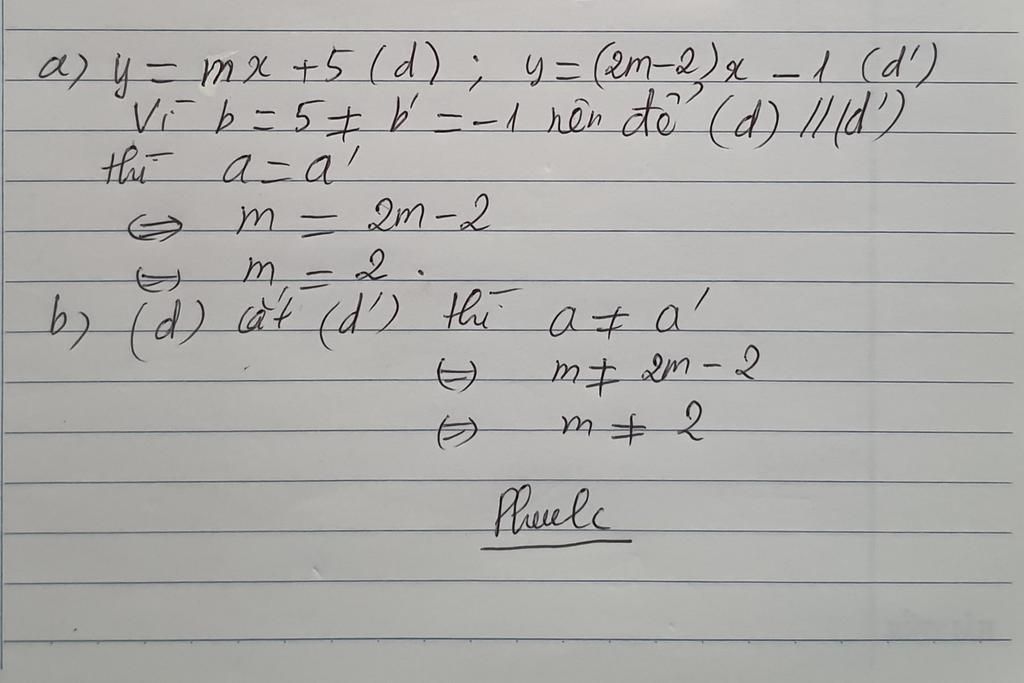 a) y = mx + 5 (d) ; y = (2m-2)x - 1 (d')
Vì b = 5 ≠ b' = -1 nên để (d) // (d')
thì a = a'
⇔ m = 2m - 2
⇔ m = 2.
b) (d) cắt (d') thì a ≠ a'
⇔ m ≠ 2m - 2
⇔ m ≠ 2